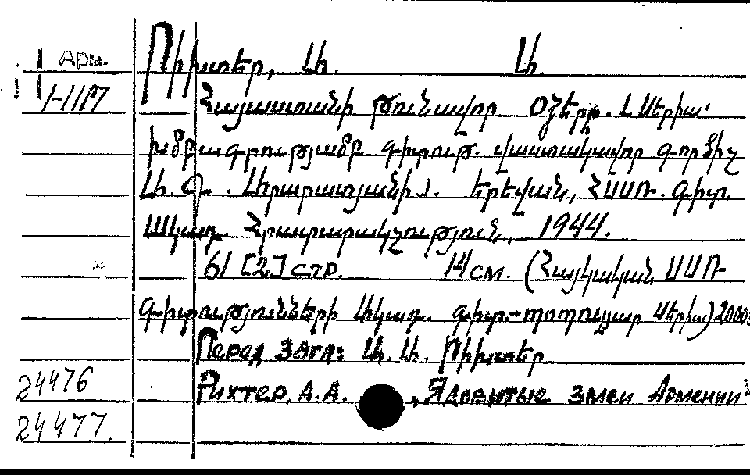 Арм.
Ռիխտեր, Ա. Ա.
1-1187
Հայաստանի թունավոր օձերը. (Սերիա՝
խմբագրությամբ գիտութ. վաստակավոր գործիչ
Ա. Գ. Արարատյանի). Երևան, ՀՍՍՌ. գիտ.
Ակադ. Հրատարակչություն, 1944.
61 [2] стр. 14 см. (Հայկական ՍՍՌ
գիտությունների Ակադ. գիտ.-պոպուլյար սերիա) 2000
Перед загл: Ա. Ա. Ռիխտեր
24476
Рихтер, А. А. „Ядовитые змеи Армении"
24477.